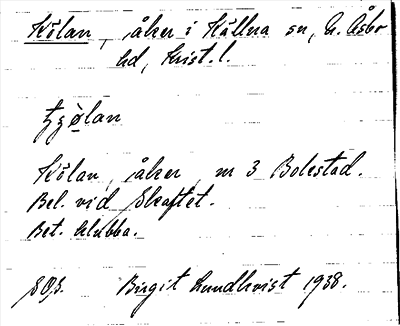 Kölan, åker i Källna sn, N. Åsbo
hd, Krist. l.
Kölan, åker, nr 3 Bolestad.
Bel. vid Skaftet.
Bet. klubba.
Birgit Lundkvist 1938.